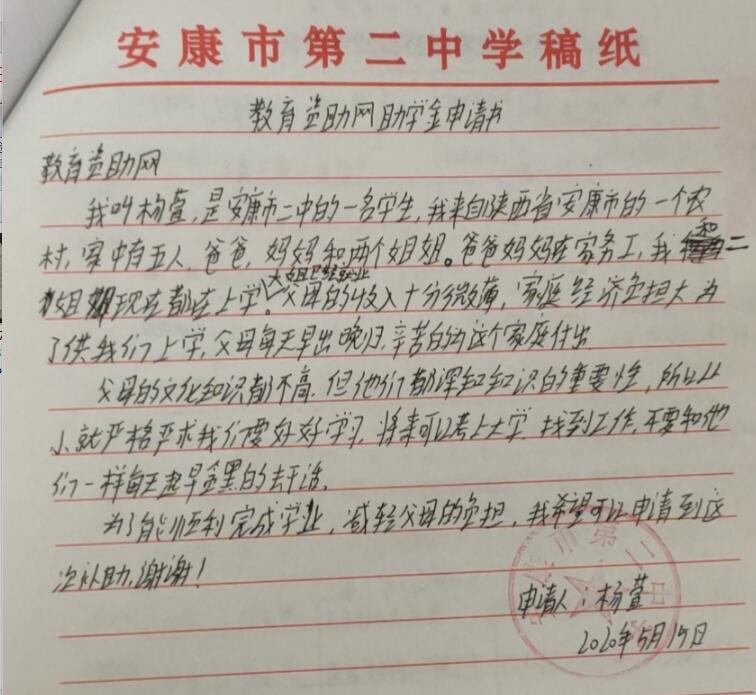 安康市第二中学稿纸
教育资助网助学金申请书
教育资助网
我叫杨萱,是安康市二中的一名学生,我来自陕西省安康市的一个农
村,家中有五人,爸爸,妈妈和两个姐姐。爸爸妈妈在家务工,我和二
大姐已经就业
姐现在都在上学。父母的收入十分微薄,家庭经济负担大为
了供我们上学,父母每天早出晚归,辛苦的为这个家庭付出
父母的文化知识都不高,但他们都深知知识的重要性,所以从
小就严格要求我们要好好学习,将来可以考上大学,找到工作,不要和他
们一样每天起早贪黑的去干活。
为了能顺利完成学业,减轻父母的负担,我希望可以申请到这
次补助,谢谢!
申请人:杨萱
2020年5月15日
市第二中